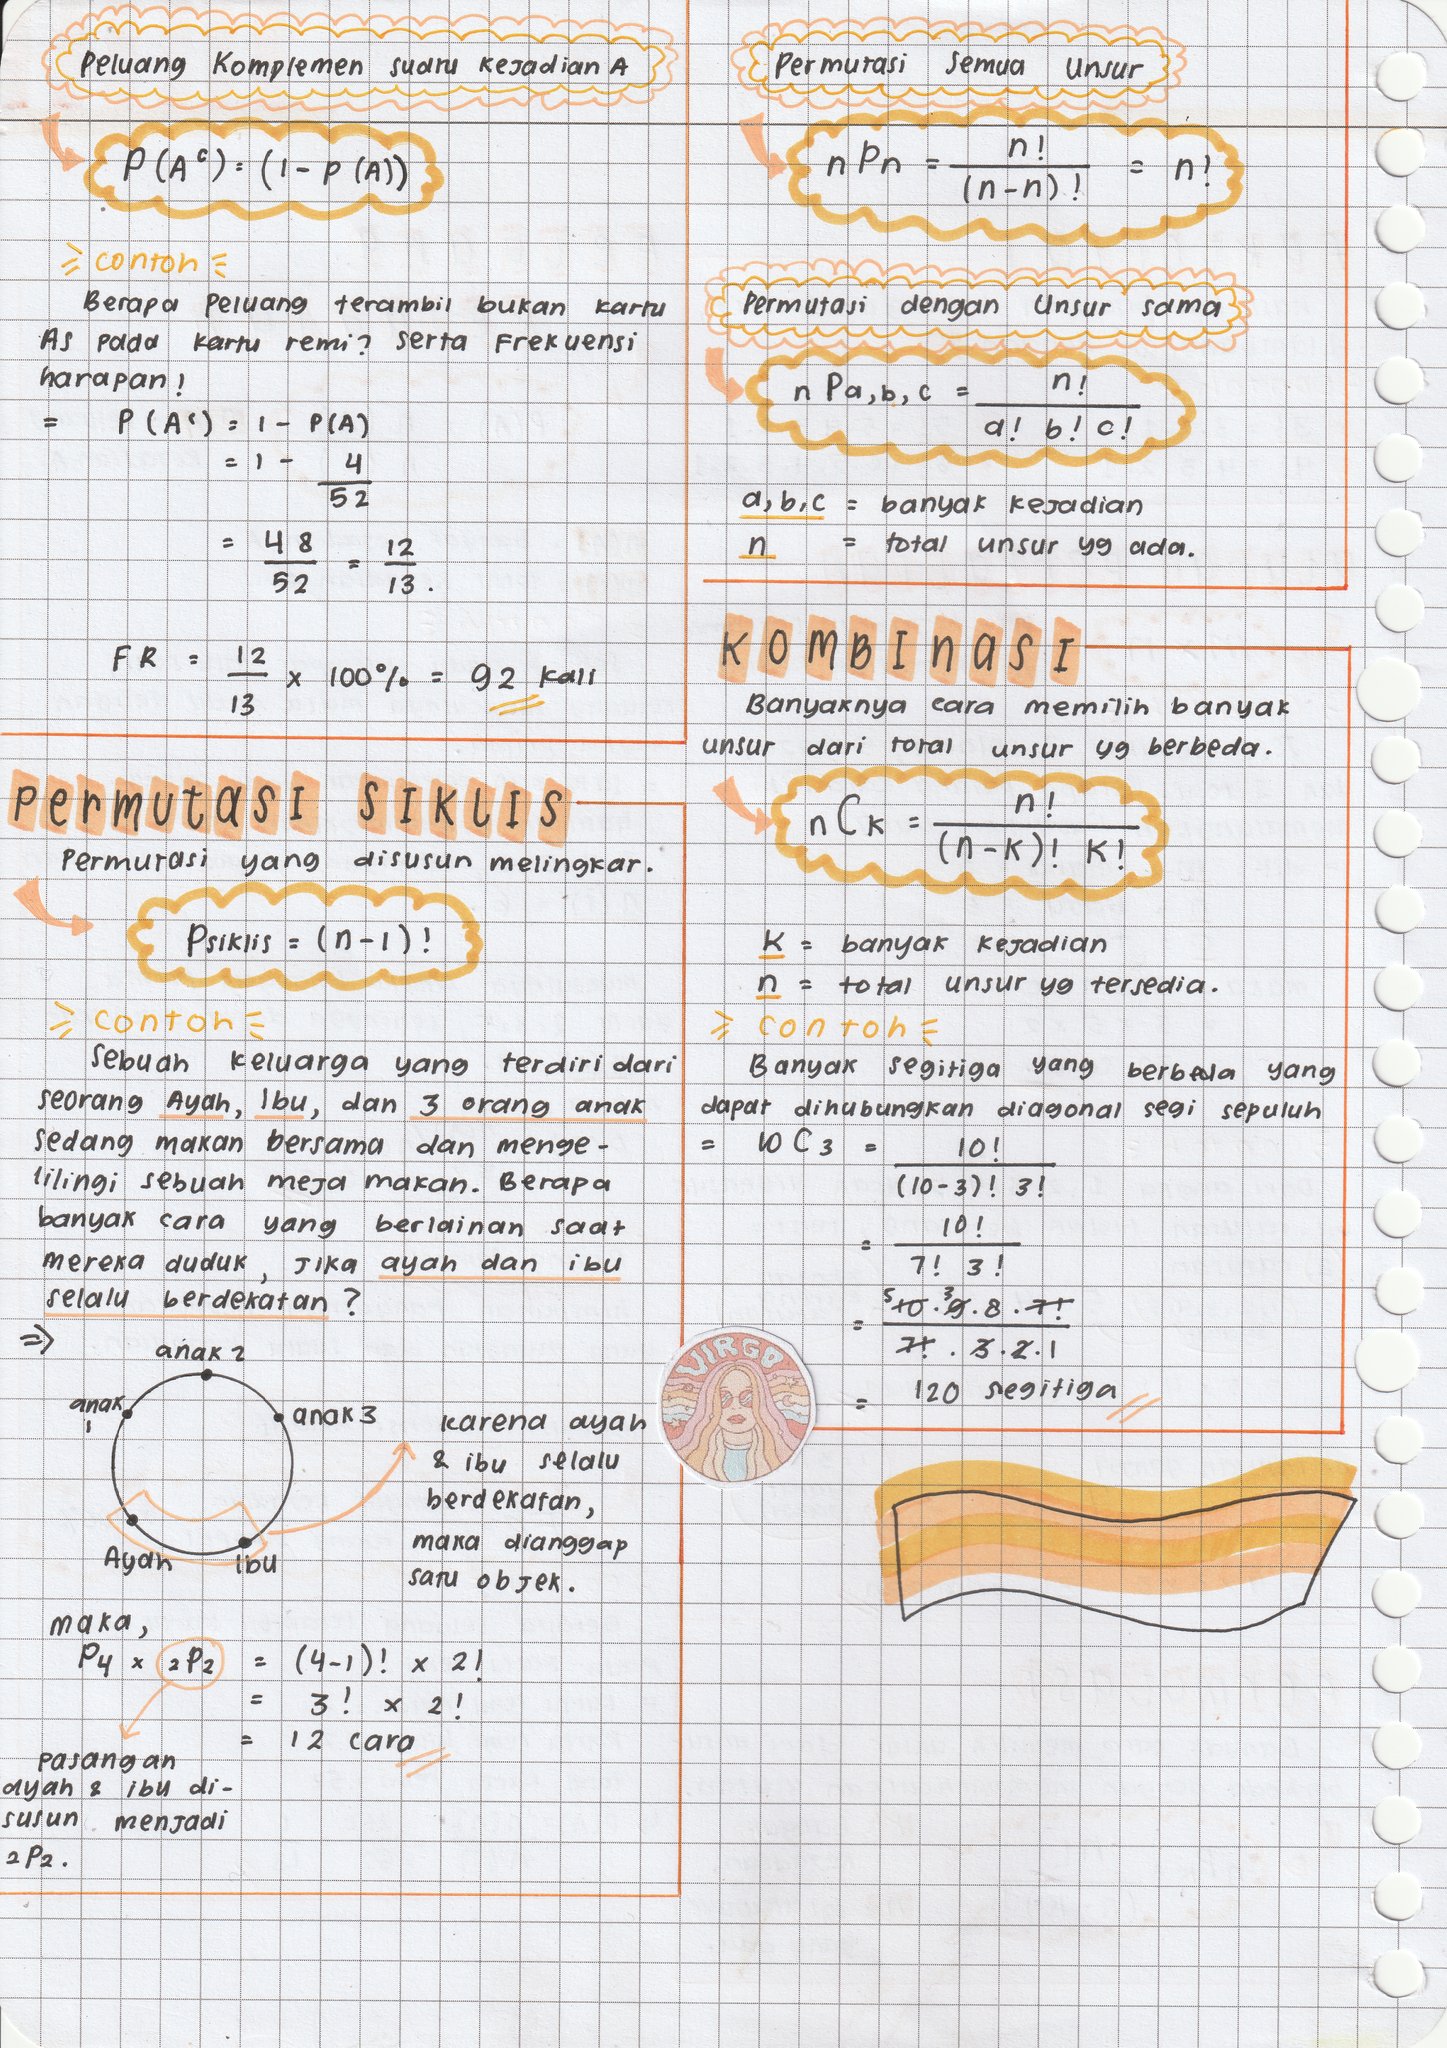 Peluang Komplemen suatu kejadian A
P(Aᶜ) = (1 - P(A))
contoh
Berapa peluang terambil bukan kartu
As pada kartu remi? serta Frekuensi
harapan!
= P(Aᶜ) = 1 - P(A)
= 1 - 4/52
= 48/52 = 12/13.
FR = 12/13 x 100% = 92 kali
PERMUTASI SIKLIS
Permutasi yang disusun melingkar.
Psiklis = (n-1)!
contoh
Sebuah keluarga yang terdiri dari
seorang Ayah, Ibu, dan 3 orang anak
sedang makan bersama dan menge-
lilingi sebuah meja makan. Berapa
banyak cara yang berlainan saat
mereka duduk, jika ayah dan ibu
selalu berdekatan?
⇒
anak 2
anak
1
anak 3
Ayah
ibu
karena ayah
& ibu selalu
berdekatan,
maka dianggap
satu objek.
maka,
P4 x 2P2 = (4-1)! x 2!
= 3! x 2!
= 12 cara
pasangan
ayah & ibu di-
susun menjadi
2P2.
Permutasi Semua Unsur
nPn = n!/(n-n)! = n!
Permutasi dengan Unsur sama
nPa,b,c = n!/a! b! c!
a,b,c = banyak kejadian
n = total unsur yg ada.
KOMBINASI
Banyaknya cara memilih banyak
unsur dari total unsur yg berbeda.
nCk = n!/(n-k)! k!
k = banyak kejadian
n = total unsur yg tersedia.
contoh
Banyak segitiga yang berbeda yang
dapat dihubungkan diagonal segi sepuluh
= 10C3 = 10!/(10-3)! 3!
= 10!/7! 3!
5 3
= 10.9.8.7!/7!.3.2.1
= 120 segitiga
VIRGO